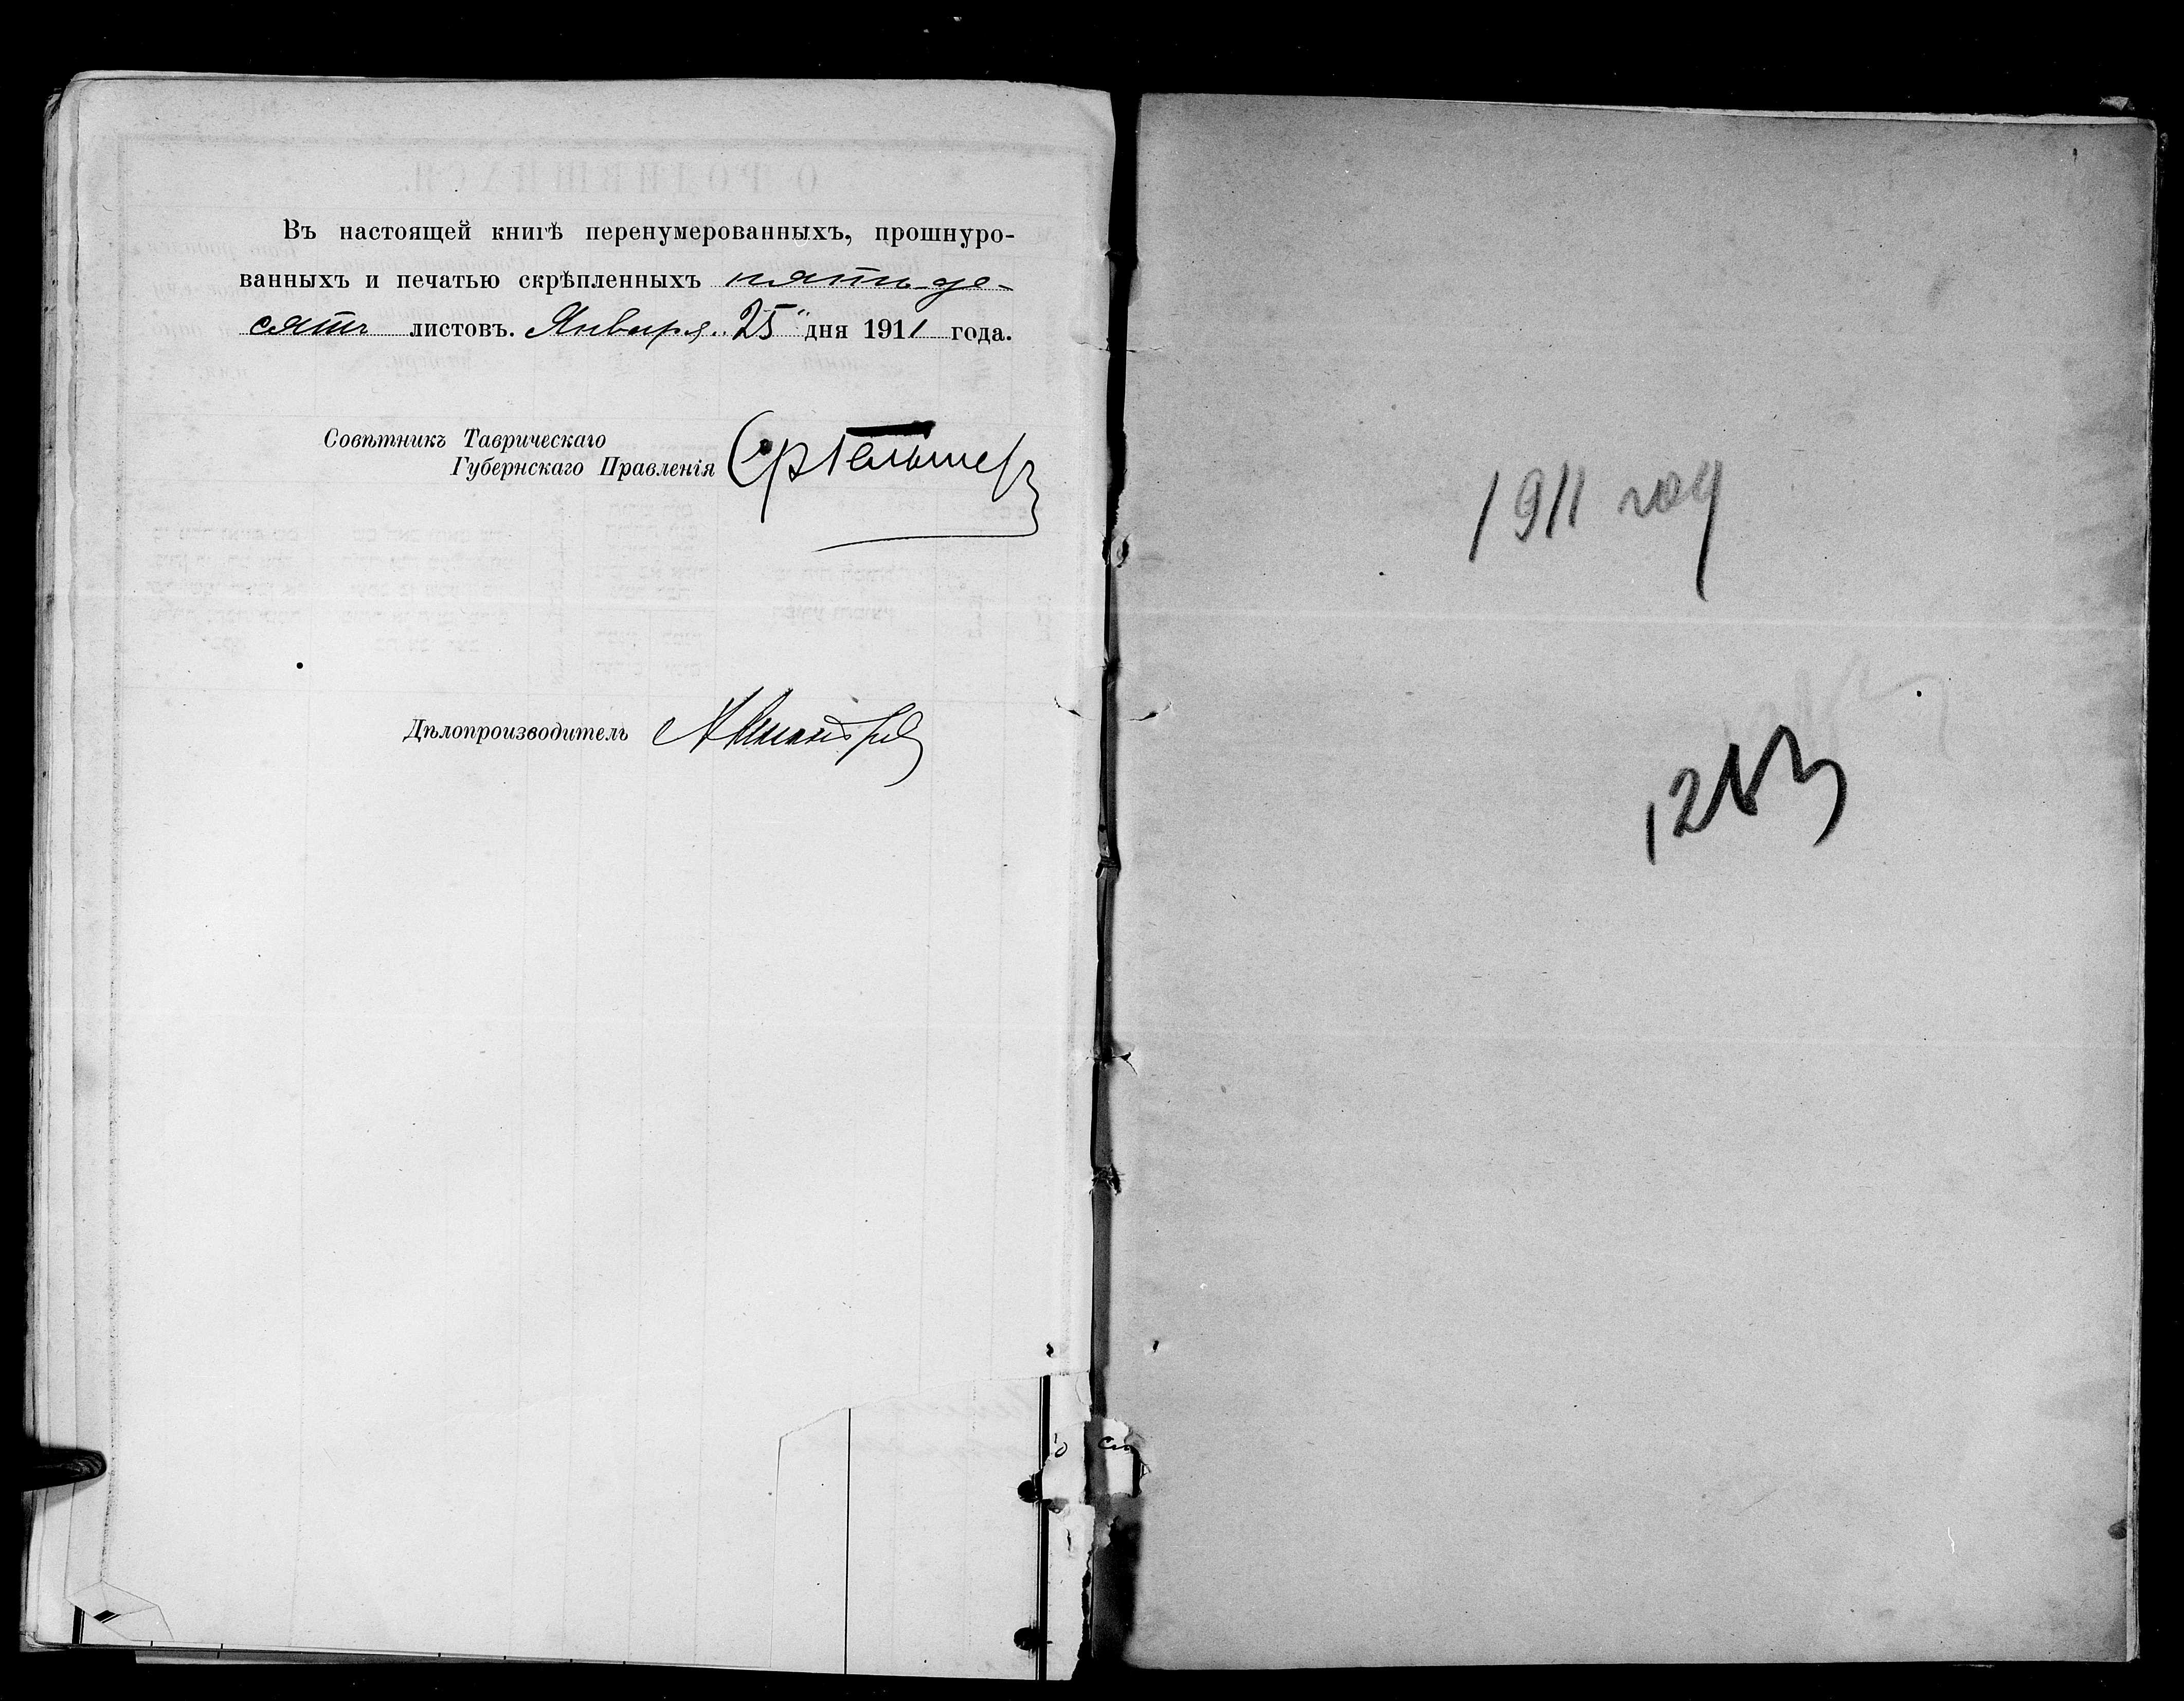 Въ настоящей книгѣ перенумерованныхъ, прошнуро-
ванныхъ и печатью скрѣпленныхъ пять-де-
сятъ листовъ. Января 25" дня 1911 года.
Совѣтникъ Таврическаго
Губернскаго Правленія
Дѣлопроизводитель
1911 год